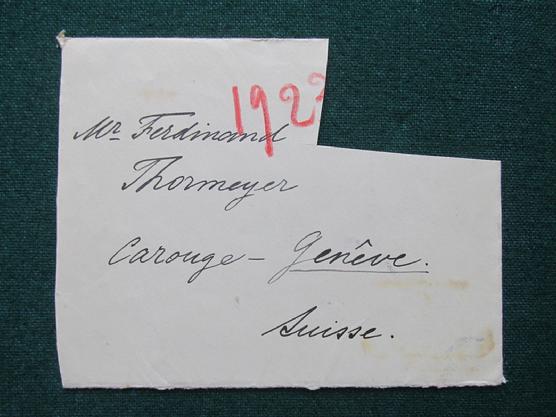 192
Mr Ferdinand
Thormeyer
Carouge - Genêve.
Suisse.